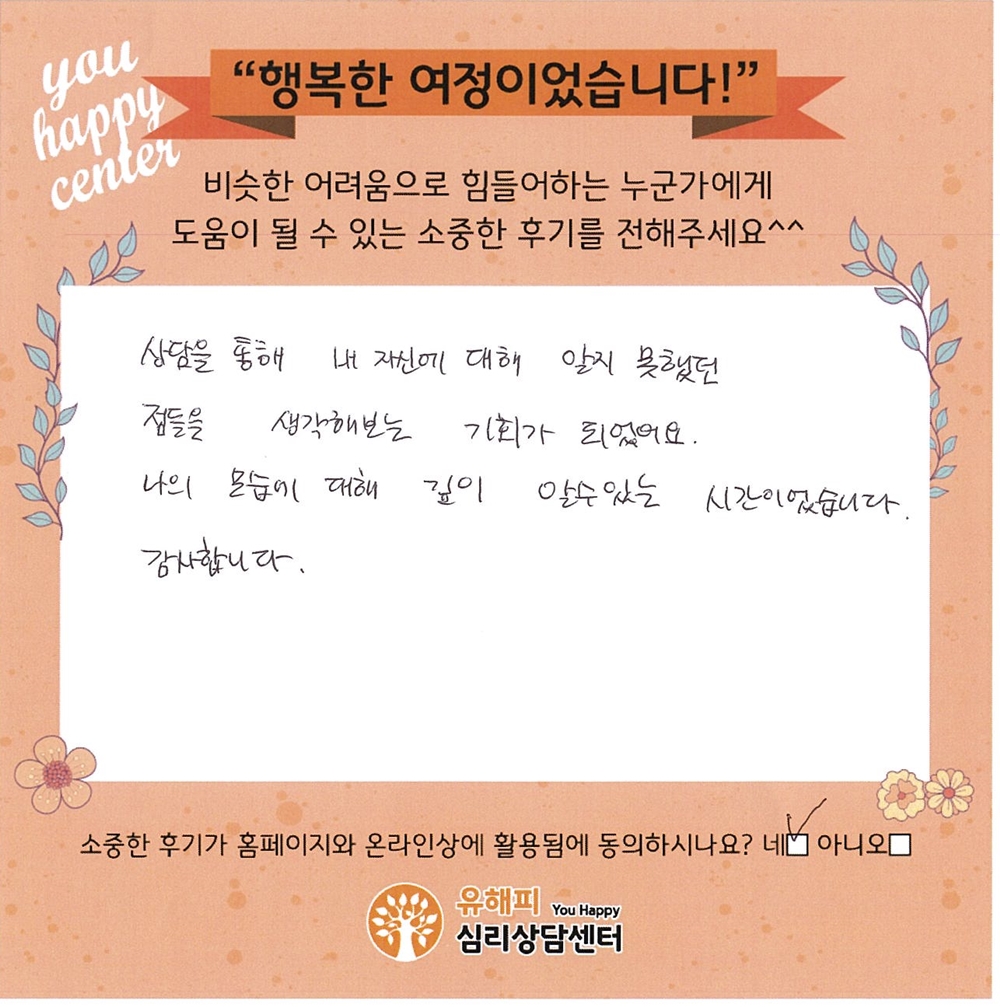 you
happy
center
“행복한 여정이었습니다!”
비슷한 어려움으로 힘들어하는 누군가에게
도움이 될 수 있는 소중한 후기를 전해주세요^^
상담을 통해 내 자신에 대해 알지 못했던
점들을 생각해보는 기회가 되었어요.
나의 모습에 대해 깊이 알수있는 시간이었습니다.
감사합니다.
소중한 후기가 홈페이지와 온라인상에 활용됨에 동의하시나요? 네 아니오
유해피 You Happy
심리상담센터